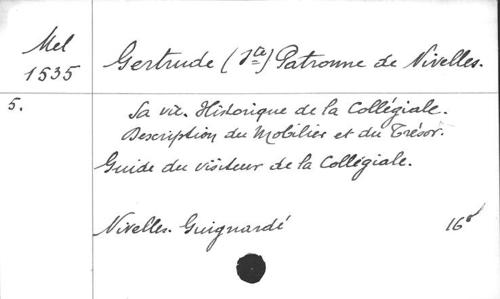 Mel
1535
Gertrude (Ste) Patronne de Nivelles.
5.
Sa vie. Historique de la Collégiale.
Description du Mobilier et du Trésor.
Guide du visiteur de la Collégiale.
Nivelles. Guignardé
16°